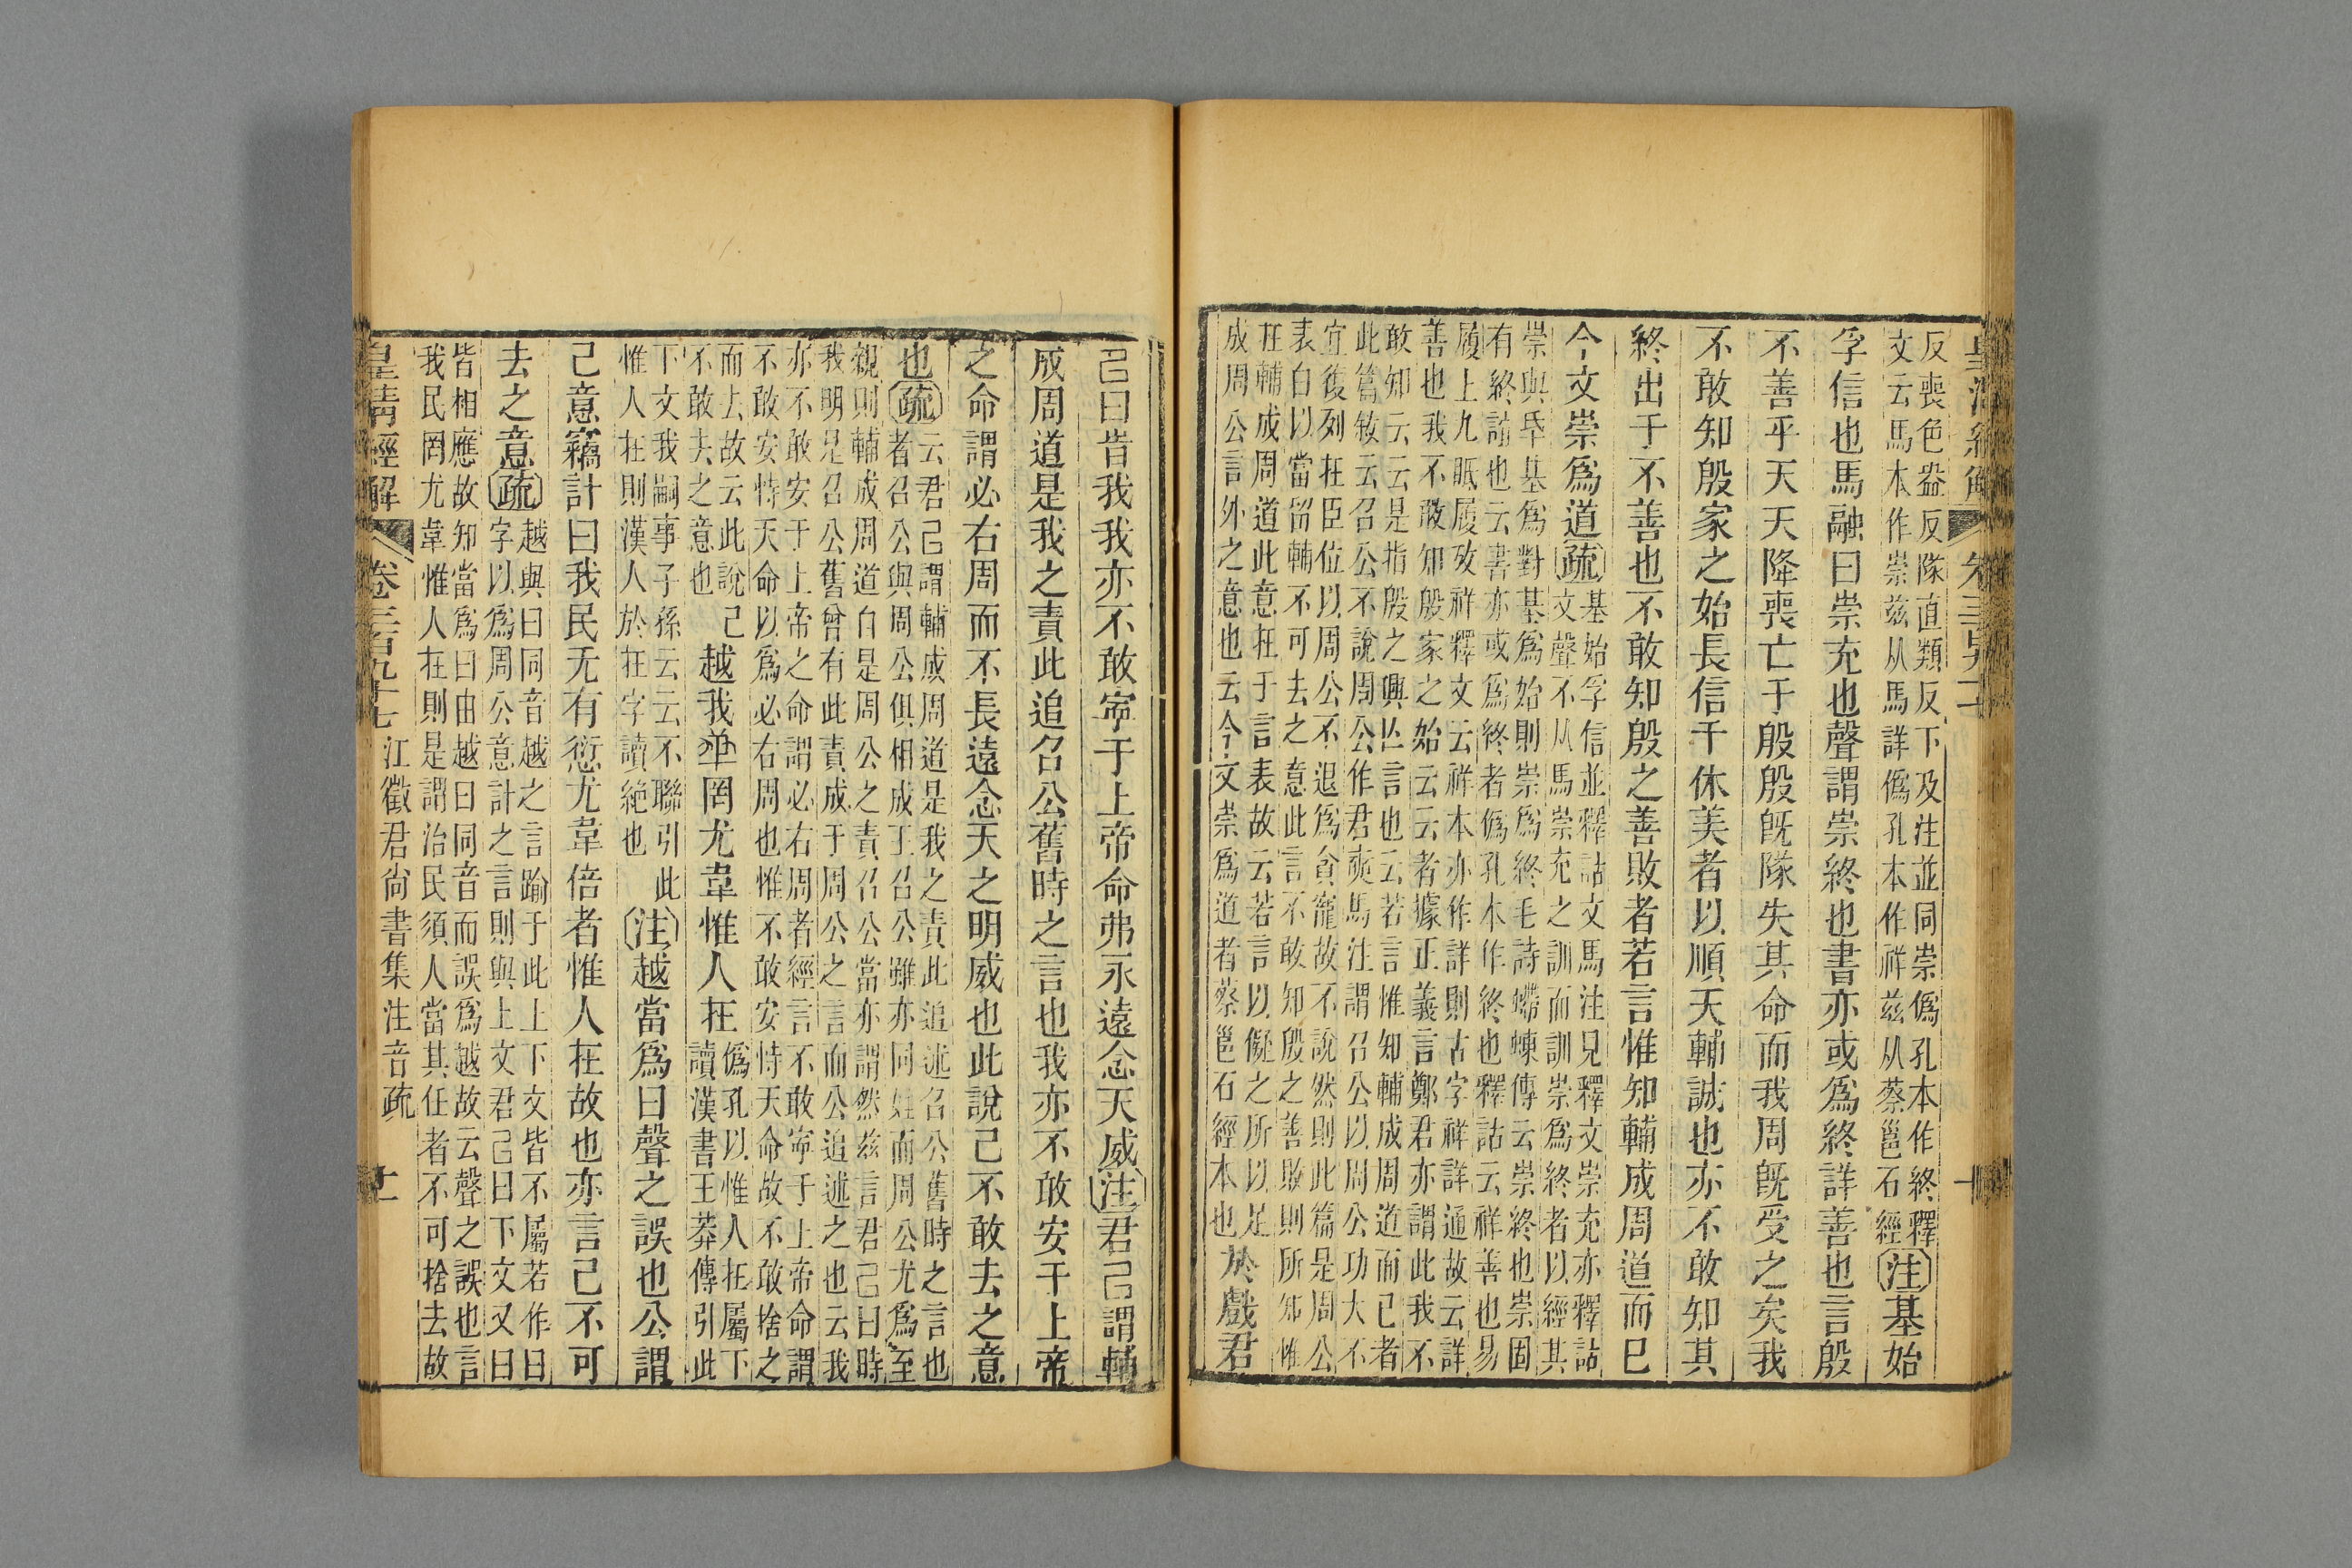 反喪色㿽反隊直類反下及注並同崇偽孔本作終釋
文云馬本作崇兹从馬詳偽孔本作祥兹从蔡邕石經
注基始
孚信也馬融曰崇充也聲謂崇終也書亦或爲終詳善也言殷
不善乎天天降喪亡于殷殷旣隊失其命而我周旣受之矣我
不敢知殷家之始長信于休美者以順天輔誠也亦不敢知其
終出于不善也不敢知殷之善敗者若言惟知輔成周道而已
今文崇爲道疏
基始孚信並釋詁文馬注見釋文崇充亦釋詁
文聲不从馬崇充之訓而訓崇爲終者以經其
崇與㫳基爲對基爲始則崇爲終毛詩螮蝀傳云崇終也崇固
有終誼也云書亦或爲終者偽孔本作終也釋詁云祥善也易
履上九眂履攷祥釋文云祥本亦作詳則古字祥詳通故云詳
善也我不敢知殷家之始云云者據正義言鄭君亦謂此我不
敢知云云是指殷之興亾言也云若言惟知輔成周道而已者
此篇敘云召公不說周公作君奭馬注謂召公以周公功大不
宜復列在臣位以周公不退爲貪寵故不說然則此篇是周公
表白以當留輔不可去之意此言不敢知殷之善敗則所知惟
在輔成周道此意在于言表故云若言以儗之所以足
成周公言外之意也云今文崇爲道者蔡邕石經本也
於戲君
己曰旹我我亦不敢寍于上帝命弗永遠念天威注君己謂輔
成周道是我之責此追召公舊時之言也我亦不敢安于上帝
之命謂必右周而不長遠念天之明威也此說己不敢去之意
也疏
云君己謂輔成周道是我之責此追述召公舊時之言也
者召公與周公俱相成王召公雖亦同姓而周公尤爲至
親則輔成周道自是周公之責召公當亦謂然兹言君己曰時
我明是召公舊曾有此責成于周公之言而公追述之也云我
亦不敢安于上帝之命謂必右周者經言不敢寍于上帝命謂
不敢安恃天命以爲必右周也惟不敢安恃天命故不敢捨之
而去故云此說己
不敢去之意也
越我㞷罔尤韋惟人在
偽孔以惟人在屬下
讀漢書王莽傳引此
下文我嗣事子孫云云不聯引此
惟人在則漢人於在字讀絶也
注越當爲曰聲之誤也公謂
己意竊計曰我民无有愆尤韋倍者惟人在故也亦言己不可
去之意疏
越與曰同音越之言踰于此上下文皆不屬若作曰
字以爲周公意計之言則與上文君己曰下文又曰
皆相應故知當爲曰由越曰同音而誤爲越故云聲之誤也言
我民罔尤韋惟人在則是謂治民須人當其任者不可捨去故
皇清經解
卷三百九十七
江徵君尙書集注音疏
十一